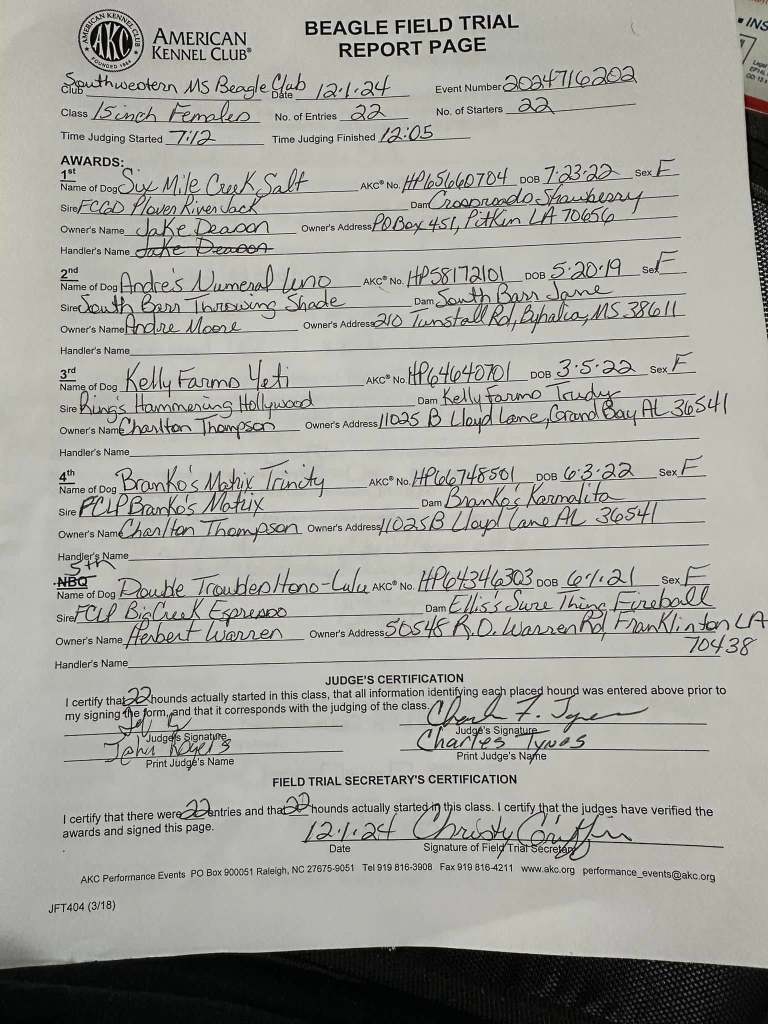 AMERICAN KENNEL CLUB®
AKC
AMERICAN KENNEL CLUB
FOUNDED 1884
BEAGLE FIELD TRIAL
REPORT PAGE
• INS
Club Southwestern MS Beagle Club Date 12·1·24 Event Number 2024716202
Class 15 inch Females No. of Entries 22 No. of Starters 22
Time Judging Started 7:12 Time Judging Finished 12:05
AWARDS:
1st
Name of Dog Six Mile Creek Salt AKC® No. HP65660704 DOB 7·23·22 Sex F
Sire FCGD Plover River Jack Dam Crossroads Strawberry
Owner's Name Jake Deason Owner's Address PO Box 451, Pitkin LA 70656
Handler's Name Jake Deason
2nd
Name of Dog Andre's Numeral Uno AKC® No. HP58172101 DOB 5·20·19 Sex F
Sire South Barr Throwing Shade Dam South Barr Jane
Owner's Name Andre Moore Owner's Address 210 Tunstall Rd, Byhalia, MS 38611
Handler's Name
3rd
Name of Dog Kelly Farms Yeti AKC® No. HP64640701 DOB 3·5·22 Sex F
Sire King's Hammering Hollywood Dam Kelly Farms Trudy
Owner's Name Charlton Thompson Owner's Address 11025 B Lloyd Lane, Grand Bay AL 36541
Handler's Name
4th
Name of Dog Branko's Matrix Trinity AKC® No. HP66748501 DOB 6·3·22 Sex F
Sire FCLP Branko's Matrix Dam Branko's Karmalita
Owner's Name Charlton Thompson Owner's Address 11025B Lloyd Lane AL 36541
Handler's Name
5th
NBQ
Name of Dog Double Troubles Hono-Lulu AKC® No. HP64346303 DOB 6·1·21 Sex F
Sire FCLP Big Creek Espresso Dam Ellis's Sure Thing Fireball
Owner's Name Herbert Warren Owner's Address 50548 R.D. Warren Rd, Franklinton LA
70438
Handler's Name
JUDGE'S CERTIFICATION
I certify that 22 hounds actually started in this class, that all information identifying each placed hound was entered above prior to
my signing the form, and that it corresponds with the judging of the class.
Charles F. Tynes
Judge's Signature Judge's Signature
John Rogers Charles Tynes
Print Judge's Name Print Judge's Name
FIELD TRIAL SECRETARY'S CERTIFICATION
I certify that there were 22 entries and that 22 hounds actually started in this class. I certify that the judges have verified the
awards and signed this page.
12·1·24 Christy Griffin
Date Signature of Field Trial Secretary
AKC Performance Events PO Box 900051 Raleigh, NC 27675-9051 Tel 919 816-3908 Fax 919 816-4211 www.akc.org performance_events@akc.org
JFT404 (3/18)